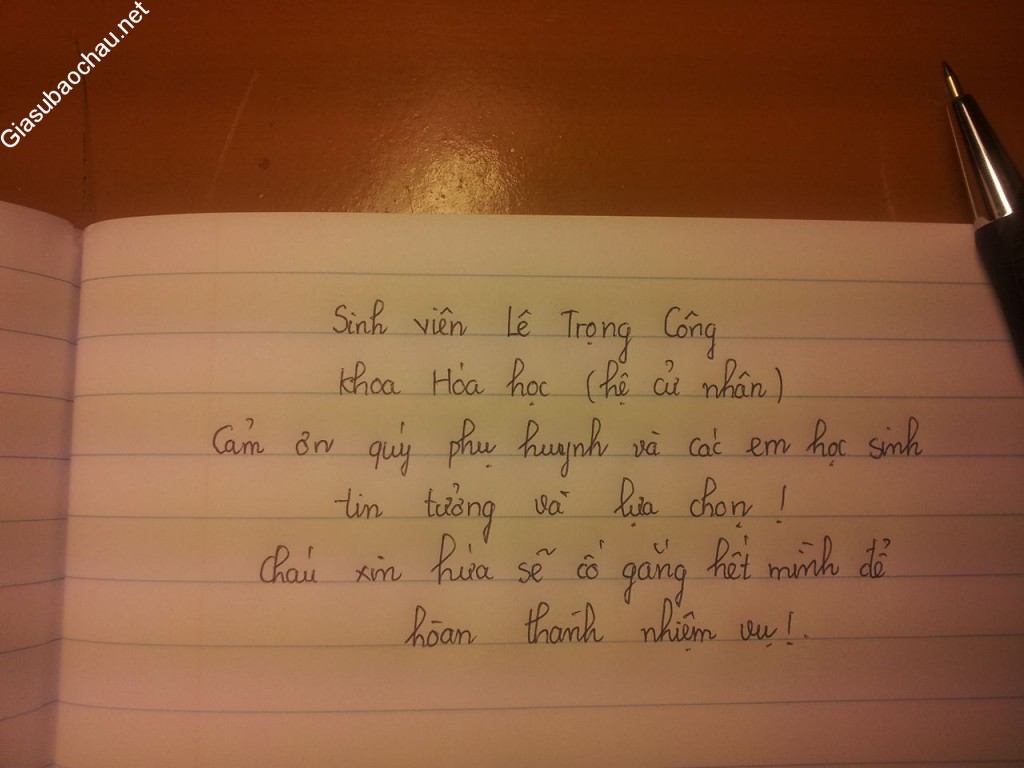 Giasubaochau.net
Sinh viên Lê Trọng Công
Khoa Hóa học (hệ cử nhân)
Cảm ơn quý phụ huynh và các em học sinh
tin tưởng và lựa chọn !
Cháu xin hứa sẽ cố gắng hết mình để
hòan thành nhiệm vụ !.